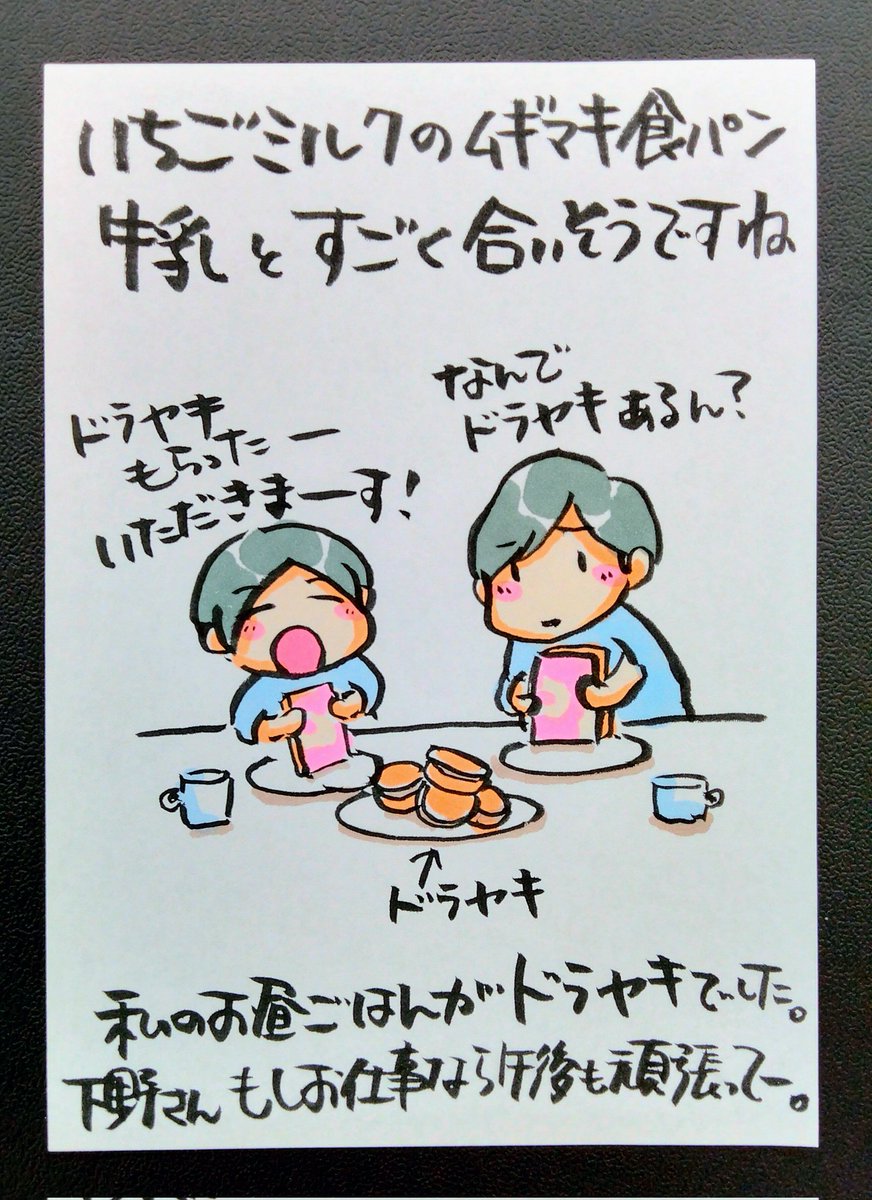 いちごミルクのムギマキ食パン
牛乳とすごく合いそうですね
ドラヤキ
もらったー
いただきまーす!
なんで
ドラヤキあるん?
↑
ドラヤキ
私のお昼ごはんがドラヤキでした。
下野さんもしお仕事なら午後も頑張ってー。